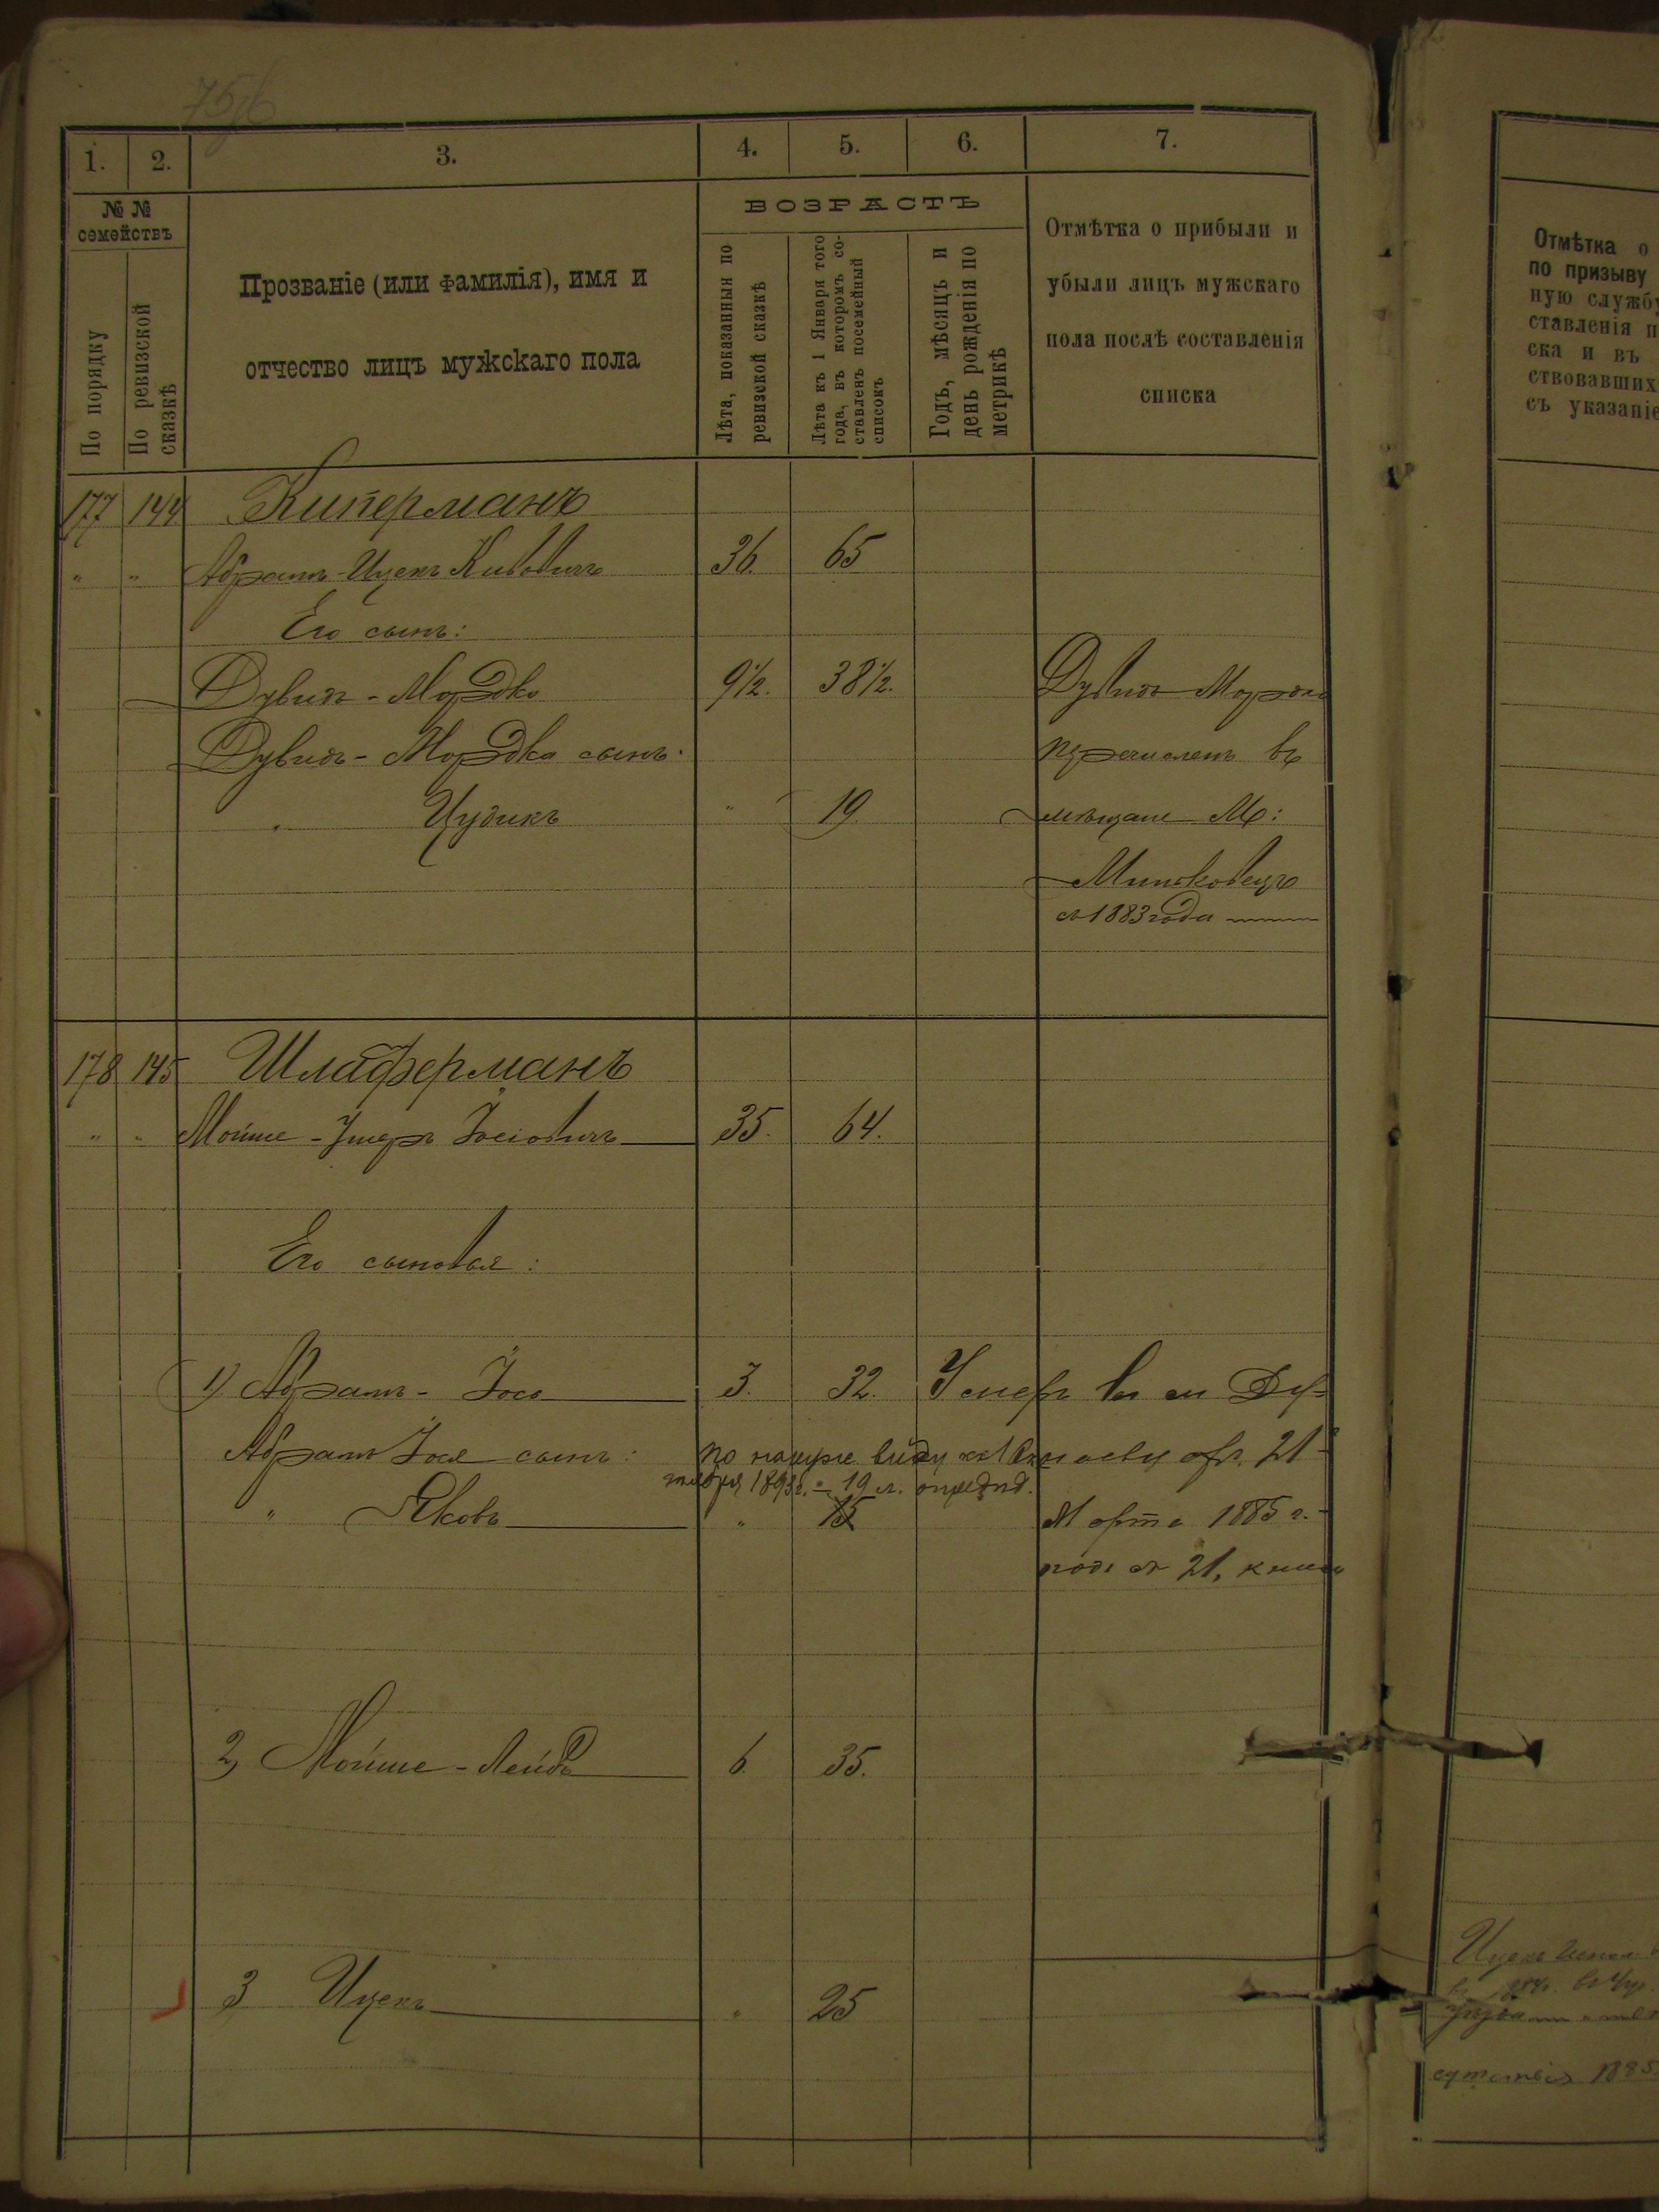 1.
2.
3.
4.
5.
6.
7.
№ №
семействъ
По порядку
По ревизской
сказкѣ
Прозваніе (или фамилія), имя и
отчество лицъ мужскаго пола
ВОЗРАСТЪ
Лѣта, показанныя по
ревизской сказкѣ
Лѣта къ 1 Января того
года, въ которомъ со-
ставленъ посемейный
списокъ
Годъ, мѣсяцъ и
день рожденія по
метрикѣ
Отмѣтка о прибыли и
убыли лицъ мужскаго
пола послѣ составленія
списка
177 144 Киперманъ
" " Абрамъ-Ицекъ Кивовичъ 36. 65
Его сынъ:
Дувидъ-Мордко 9½. 38½. Дувидъ Мордко
Дувидъ-Мордка сынъ перечисленъ въ
" Цудикъ " 19 мѣщане М:
Миньковецъ
съ 1883 года
178 145 Шлаферманъ
" " Мойше-Ушеръ Іосіовичъ 35. 64.
Его сыновья:
1) Абрамъ-Іосъ 3. 32. Умеръ въ
Абрамъ Іося сынъ: по наружн виду къ 21
1893 г. 19 л. опредѣл.
" Яковъ " 15 Марта 1885 г.
подъ № 21,
2) Мойше-Лейба 6. 35.
3 Ицекъ " 25
Отмѣтка о
по призыву
ную службу
ставленія п
ска и въ
ствовавших
съ указаніе
Ицекъ
1885